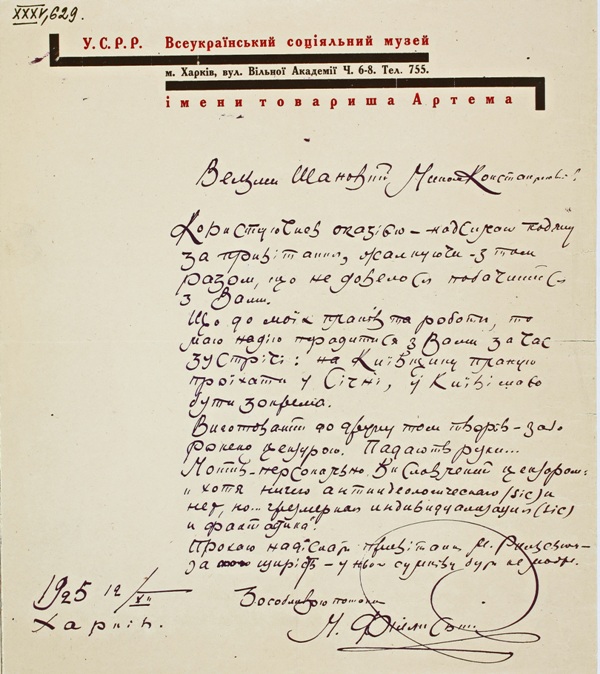 XXXV, 629.
У.С.Р.Р. Всеукраїнський соціяльний музей
м. Харків, вул. Вільної Академії Ч. 6-8. Тел. 755.
імени товариша Артема
Вельми Шановний Микола Константинович!
Користуючись оказією – надсилаю подяку
за привітання, жалкуючи – з тим
разом, що не довелося побачитися
з Вами.
Що до моїх планів та роботи, то
маю надію порадитися з Вами за час
зустрічі: на Київщину планую
проїхати у Січні, у Київі маю
бути зокрема.
Виготовані до друку том творів – забо
ронено цензурою. Падають руки...
Мотив – персонально висловлений цензором:
"хотя ничего антиидеологического (sic) и
нет, но... чрезмерная индивидуализация (sic)
и фактадика".
Прохаю надіслати привітання М. Рильському
за щирість – у нього сумніву бути не може.
1925 12/XII
Харків.
З особливою
М. Філянський